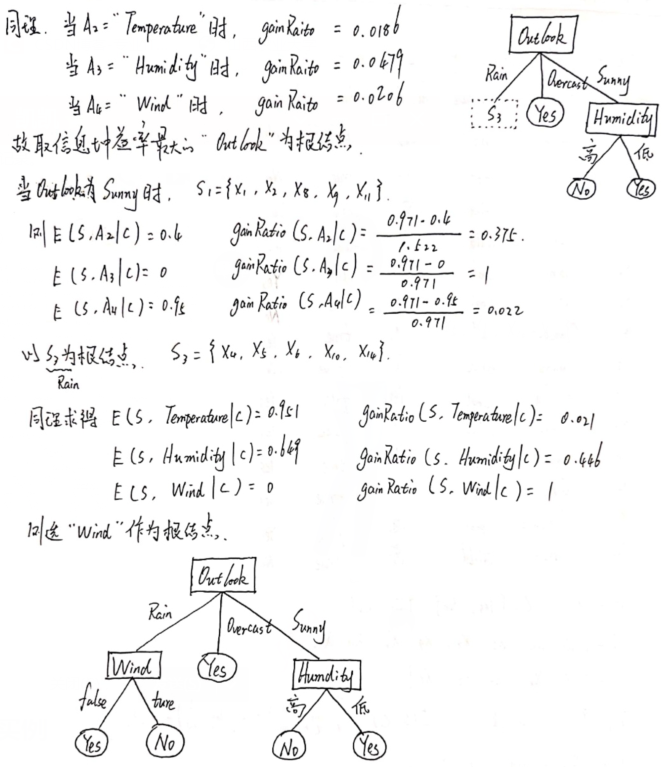 同理. 当 A₂ = "Temperature" 时, gainRaito = 0.0186
当 A₃ = "Humidity" 时, gainRaito = 0.0479
当 A₄ = "Wind" 时, gainRaito = 0.0206
故取信息增益率最大的 "Outlook" 为根结点.
Outlook
Rain Overcast Sunny
S₃ Yes Humidity
高 低
No Yes
当 Outlook 为 Sunny 时, S₁ = {X₁, X₂, X₈, X₉, X₁₁}.
则 E(S, A₂|C) = 0.4 gainRatio(S, A₂|C) = (0.971 - 0.4)/1.522 = 0.375.
E(S, A₃|C) = 0 gainRatio(S, A₃|C) = (0.971 - 0)/0.971 = 1
E(S, A₄|C) = 0.95 gainRatio(S, A₄|C) = (0.971 - 0.95)/0.971 = 0.022
以 S₃ 为根结点, S₃ = {X₄, X₅, X₆, X₁₀, X₁₄}.
Rain
同理求得 E(S, Temperature|C) = 0.951 gainRatio(S, Temperature|C) = 0.021
E(S, Humidity|C) = 0.649 gainRatio(S, Humidity|C) = 0.446
E(S, Wind|C) = 0 gainRatio(S, Wind|C) = 1
则选 "Wind" 作为根结点.
Outlook
Rain Overcast Sunny
Wind Yes Humdity
false ture 高 低
Yes No No Yes